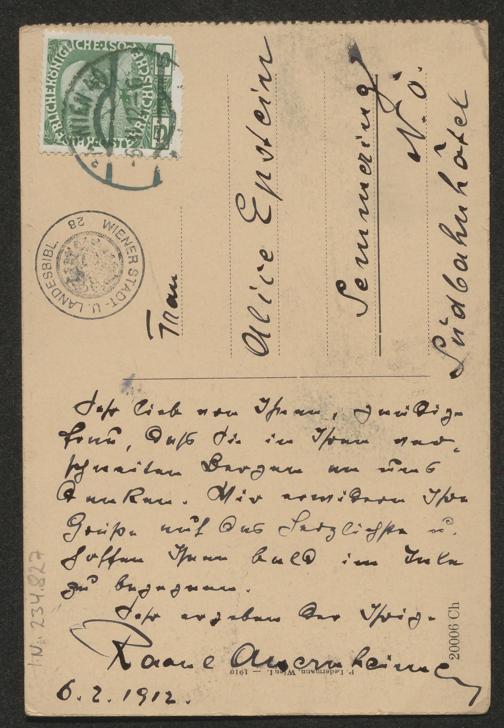 KAISERLICHE KÖNIGLICHE ÖSTERREICHISCHE POST
5
WIEN
WIENER STADT- U. LANDESBIBL.
28
Frau
Alice Epstein
Semmering
N. Ö.
Südbahnhôtel
Sehr lieb von Ihnen, gnädige
Frau, daß Sie in Ihren ver-
schneiten Bergen an uns
denken. Wir erwidern Ihre
Grüße auf das Herzlichste u.
hoffen Ihnen bald im Tale
zu begegnen.
Sehr ergeben der Ihrige
Raoul Auernheimer
6. 2. 1912.
P. Ledermann, Wien I. — 1910
20006 Ch
I.N. 234.827